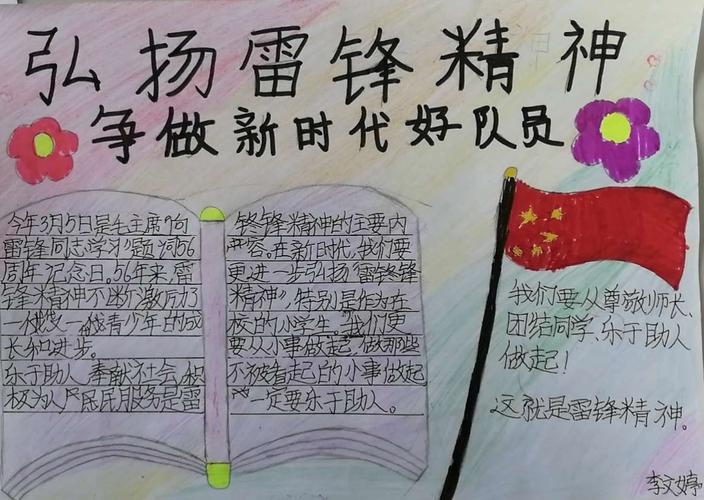 弘扬雷锋精神
争做新时代好队员
今年3月5日是毛主席"向
雷锋同志学习"题词56
周年纪念日。56年来,雷
锋精神不断激励了
一代又一代青少年的成
长和进步。
乐于助人,奉献社会,积
极为人民服务是雷
锋精神的主要内
容。在新时代,我们要
更进一步弘扬"雷锋
精神",特别是作为在
校的小学生,我们更
要从小事做起,做那些
不被看起的小事做起
一定要乐于助人。
我们要从尊敬师长、
团结同学、乐于助人
做起!
这就是雷锋精神。
李文婷